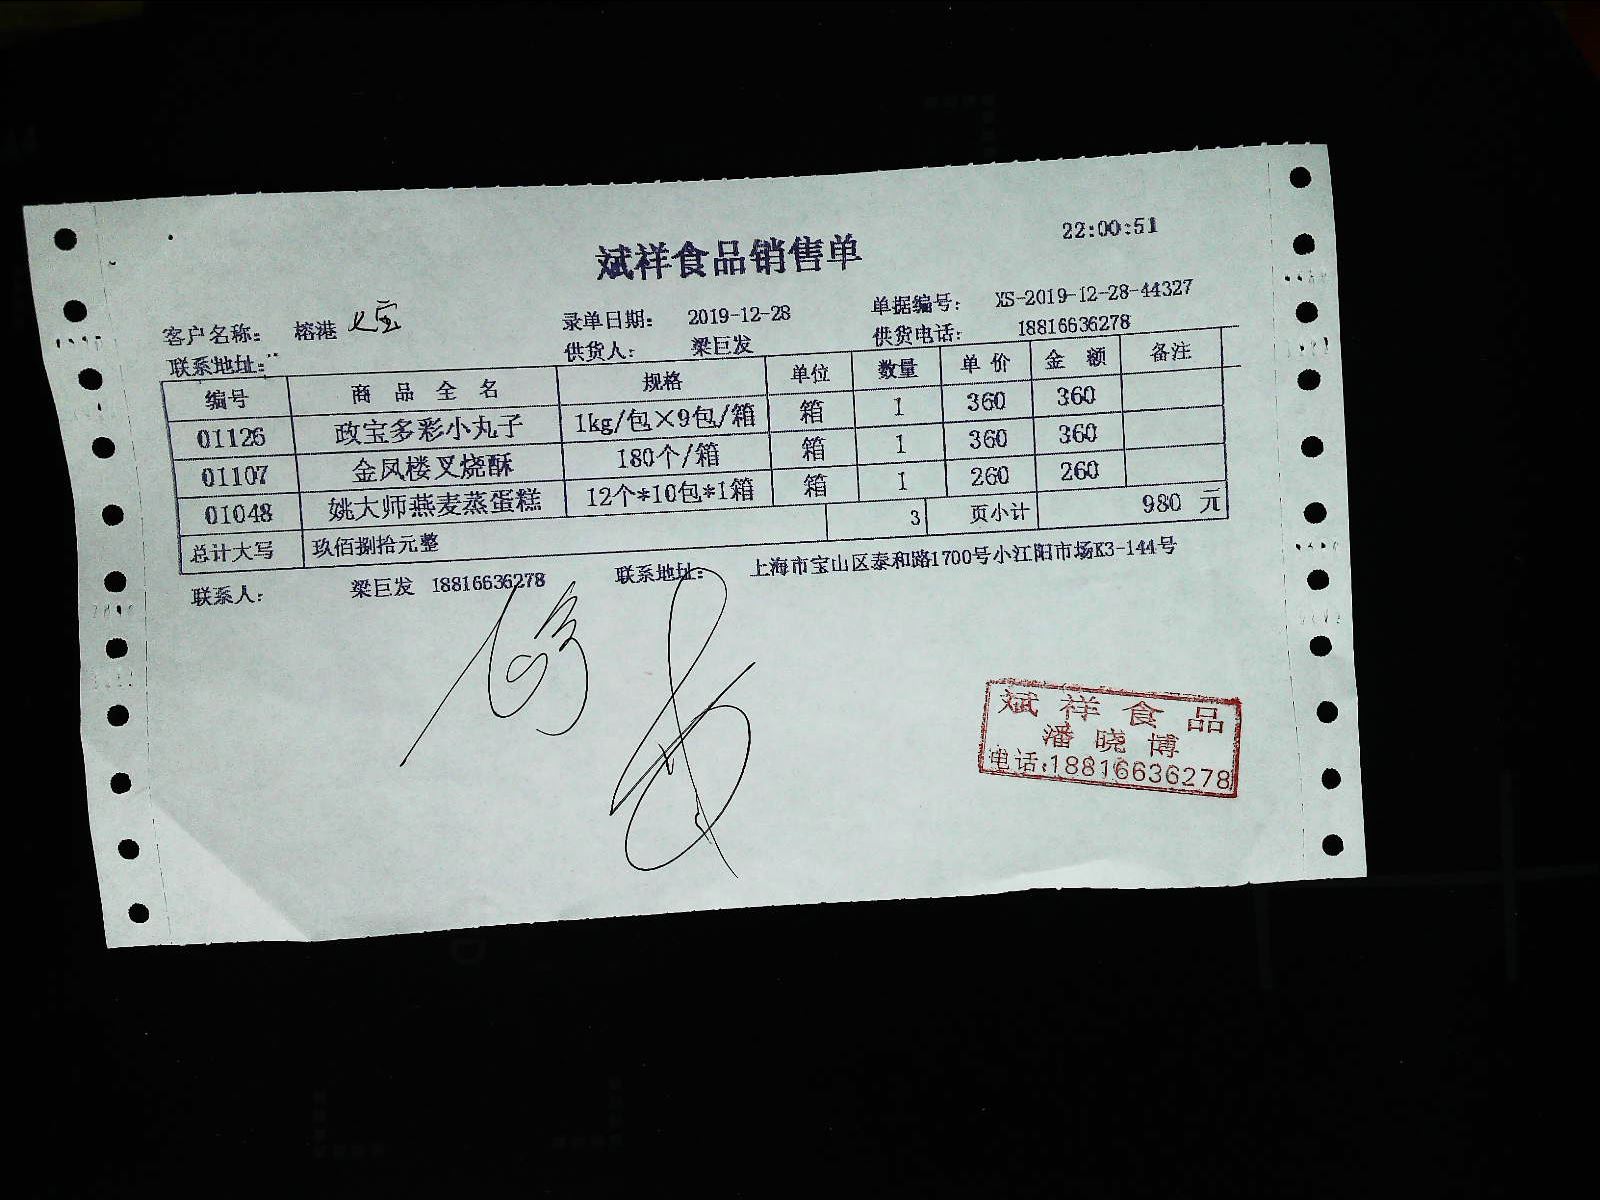 22:00:51
斌祥食品销售单
客户名称: 榕港 录单日期: 2019-12-28 单据编号: XS-2019-12-28-44327
联系地址: 供货人: 梁巨发 供货电话: 18816636278
编号 商品全名 规格 单位 数量 单价 金额 备注
01126 政宝多彩小丸子 1kg/包×9包/箱 箱 1 360 360
01107 金凤楼叉烧酥 180个/箱 箱 1 360 360
01048 姚大师燕麦蒸蛋糕 12个*10包*1箱 箱 1 260 260
总计大写 玖佰捌拾元整 3 页小计 980 元
联系人: 梁巨发 18816636278 联系地址: 上海市宝山区泰和路1700号小江阳市场K3-144号
斌祥食品
潘晓博
电话:18816636278